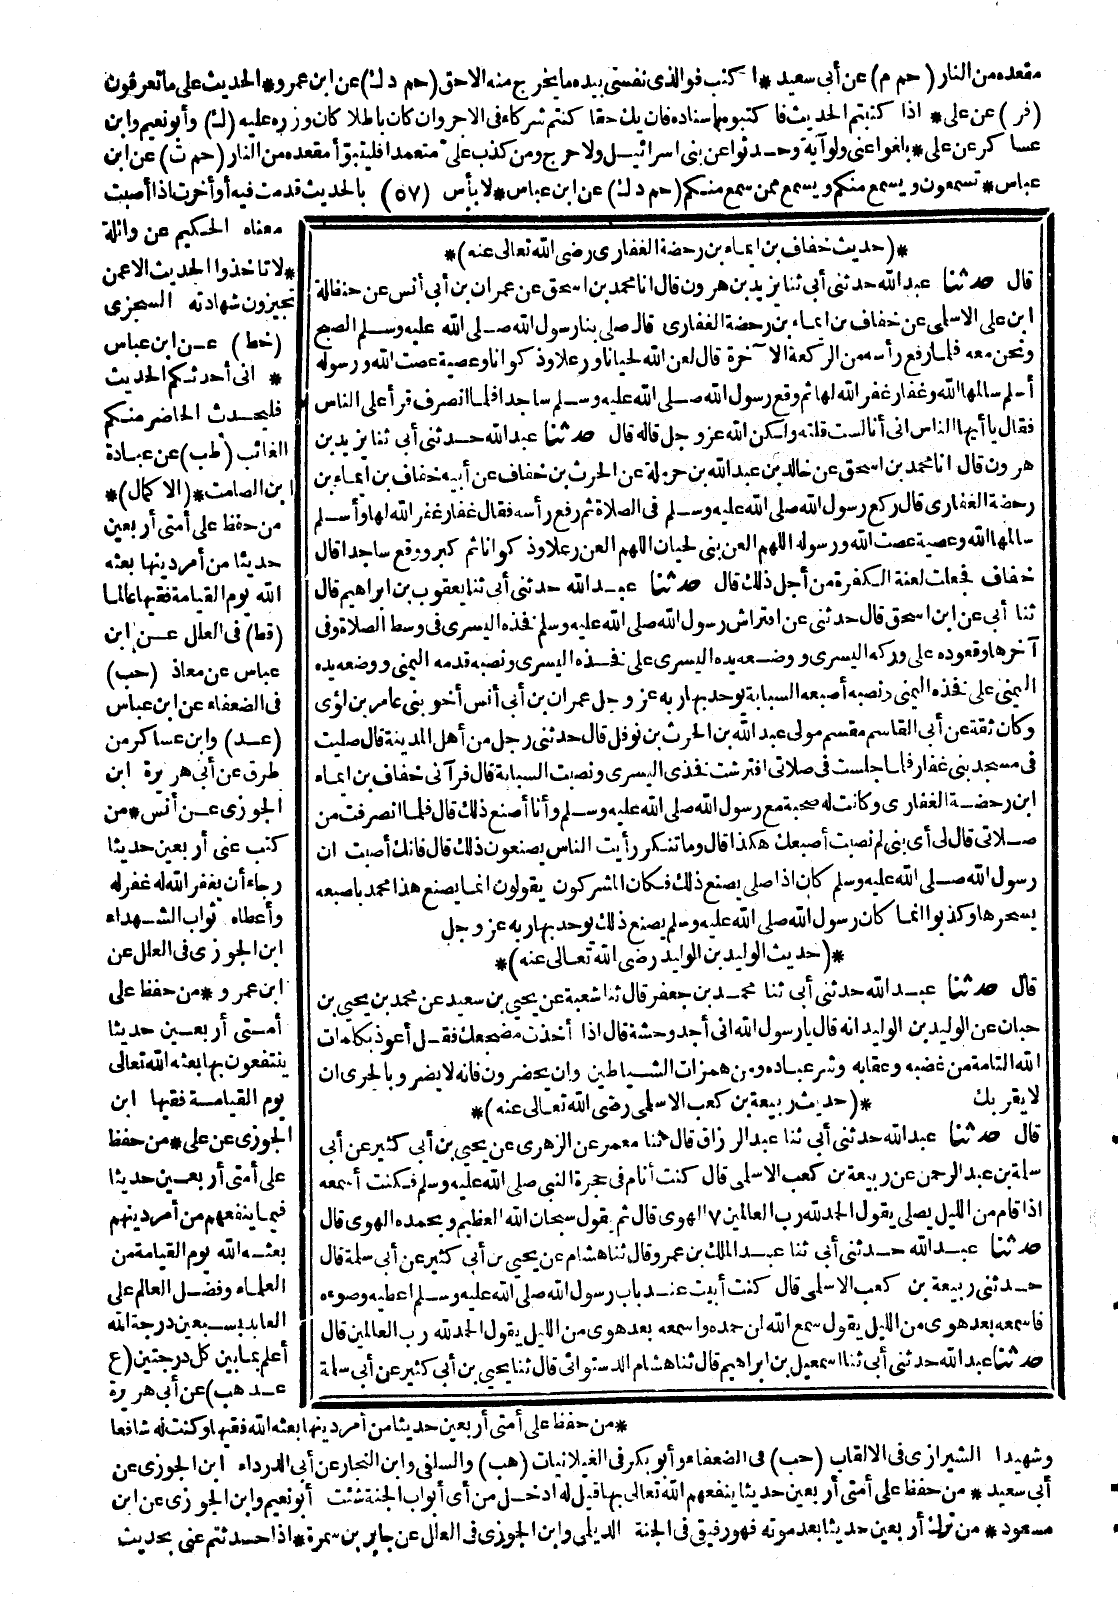 مقعده من النار (حم م) عن أبي سعيد * اكتب فوالذي نفسي بيده ما يخرج منه الاحق (حم د ك) عن ابن عمرو * الحديث على ما تعرفون
(فر) عن على * اذا كتبتم الحديث فاكتبوه باسناده فان يك حقا كنتم شركاء فى الاجر وان كان باطلا كان وزره عليه (ك) وأبو نعيم وابن
عساكر عن على * بلغوا عنى ولو آية وحدثوا عن بنى اسرائيل ولا حرج ومن كذب على متعمدا فليتبوأ مقعده من النار (حم ت) عن ابن
عباس * تسمعون ويسمع منكم ويسمع ممن سمع منكم (حم د ك) عن ابن عباس * لا بأس (٥٧) بالحديث قدمت فيه أو أخرت اذا أصبت
معناه الحكيم عن واثلة
* لا تأخذوا الحديث الا عمن
تجيزون شهادته السجزى
(خط) عن ابن عباس
* انى أحدثكم الحديث
فليحدث الحاضر منكم
الغائب (طب) عن عبادة
ابن الصامت * (الاكمال) *
من حفظ على أمتى أربعين
حديثا من أمر دينها بعثه
الله يوم القيامة فقيها عالما
(قط) فى العلل عن ابن
عباس عن معاذ (حب)
فى الضعفاء عن ابن عباس
(عد) وابن عساكر من
طرق عن أبى هريرة ابن
الجوزى عن أنس * من
كتب عنى أربعين حديثا
رجاء أن يغفر الله له غفر له
وأعطاه ثواب الشهداء
ابن الجوزى فى العلل عن
ابن عمرو * من حفظ على
أمتى أربعين حديثا
ينتفعون بها بعثه الله تعالى
يوم القيامة فقيها ابن
الجوزى عن على * من حفظ
على أمتى أربعين حديثا
فيما ينفعهم من أمر دينهم
بعثه الله يوم القيامة من
العلماء وفضل العالم على
العابد بسبعين درجة الله
أعلم بما بين كل درجتين (ع
عد هب) عن أبى هريرة
* (حديث خفاف بن ايماء بن رحضة الغفارى رضى الله تعالى عنه) *
قال حدثنا عبد الله حدثنى أبى ثنا يزيد بن هرون قال انا محمد بن اسحق عن عمران بن أبى أنس عن حنظلة
ابن على الاسلمى عن خفاف بن ايماء بن رحضة الغفارى قال صلى بنا رسول الله صلى الله عليه وسلم الصبح
ونحن معه فلما رفع رأسه من الركعة الآخرة قال لعن الله لحيانا ورعلا وذكوانا وعصية عصت الله ورسوله
أسلم سالمها الله وغفار غفر الله لها ثم وقع رسول الله صلى الله عليه وسلم ساجدا فلما انصرف قرأ على الناس
فقال يا أيها الناس انى أنا لست قلته ولكن الله عز وجل قاله قال حدثنا عبد الله حدثنى أبى ثنا يزيد بن
هرون قال انا محمد بن اسحق عن خالد بن عبد الله بن حرملة عن الحرث بن خفاف عن أبيه خفاف بن ايماء بن
رحضة الغفارى قال ركع رسول الله صلى الله عليه وسلم فى الصلاة ثم رفع رأسه فقال غفار غفر الله لها وأسلم
سالمها الله وعصية عصت الله ورسوله اللهم العن بنى لحيان اللهم العن رعلا وذكوانا ثم كبر ووقع ساجدا قال
خفاف فجعلت لعنة الكفرة من أجل ذلك قال حدثنا عبد الله حدثنى أبى ثنا يعقوب بن ابراهيم قال
ثنا أبى عن ابن اسحق قال حدثنى عن افتراش رسول الله صلى الله عليه وسلم فخذه اليسرى فى وسط الصلاة وفى
آخرها وقعوده على وركه اليسرى ووضعه يده اليسرى على فخذه اليسرى ونصبه قدمه اليمنى ووضعه يده
اليمنى على فخذه اليمنى ونصبه أصبعه السبابة يوحد بها ربه عز وجل عمران بن أبى أنس أخو بنى عامر بن لؤى
وكان ثقة عن أبى القاسم مقسم مولى عبد الله بن الحرث بن نوفل قال حدثنى رجل من أهل المدينة قال صليت
فى مسجد بنى غفار فلما جلست فى صلاتى افترشت فخذى اليسرى ونصبت السبابة قال فرآنى خفاف بن ايماء
ابن رحضة الغفارى وكانت له صحبة مع رسول الله صلى الله عليه وسلم وأنا أصنع ذلك قال فلما انصرفت من
صلاتى قال لى أى بنى لم نصبت أصبعك هكذا قال وما تنكر رأيت الناس يصنعون ذلك قال فانك أصبت ان
رسول الله صلى الله عليه وسلم كان اذا صلى يصنع ذلك فكان المشركون يقولون انما يصنع هذا محمد باصبعه
يسحرها وكذبوا انما كان رسول الله صلى الله عليه وسلم يصنع ذلك يوحد بها ربه عز وجل
* (حديث الوليد بن الوليد رضى الله تعالى عنه) *
قال حدثنا عبد الله حدثنى أبى ثنا محمد بن جعفر قال ثنا شعبة عن يحيى بن سعيد عن محمد بن يحيى بن
حبان عن الوليد بن الوليد انه قال يا رسول الله انى أجد وحشة قال اذا أخذت مضجعك فقل أعوذ بكلمات
الله التامة من غضبه وعقابه وشر عباده ومن همزات الشياطين وان يحضرون فانه لا يضر وبالحرى ان
لا يقربك * (حديث ربيعة بن كعب الاسلمى رضى الله تعالى عنه) *
قال حدثنا عبد الله حدثنى أبى ثنا عبد الرزاق قال ثنا معمر عن الزهرى عن يحيى بن أبى كثير عن أبى
سلمة بن عبد الرحمن عن ربيعة بن كعب الاسلمى قال كنت أنام فى حجرة النبى صلى الله عليه وسلم فكنت أسمعه
اذا قام من الليل يصلى يقول الحمد لله رب العالمين ٧ الهوى قال ثم يقول سبحان الله العظيم وبحمده الهوى قال
حدثنا عبد الله حدثنى أبى ثنا عبد الملك بن عمرو قال ثنا هشام عن يحيى بن أبى كثير عن أبى سلمة قال
حدثنى ربيعة بن كعب الاسلمى قال كنت أبيت عند باب رسول الله صلى الله عليه وسلم اعطيه وضوءه
فاسمعه بعد هوى من الليل يقول سمع الله لمن حمده واسمعه بعد هوى من الليل يقول الحمد لله رب العالمين قال
حدثنا عبد الله حدثنى أبى ثنا اسمعيل بن ابراهيم قال ثنا هشام الدستوائى قال ثنا يحيى بن أبى كثير عن أبى سلمة
* من حفظ على أمتى أربعين حديثا من أمر دينها بعثه الله فقيها وكنت له شافعا
وشهيدا الشيرازى فى الالقاب (حب) فى الضعفاء وأبو بكر فى الغيلانيات (هب) والسلفى وابن النجار عن أبى الدرداء ابن الجوزى عن
أبى سعيد * من حفظ على أمتى أربعين حديثا ينفعهم الله تعالى بها قيل له ادخل من أى أبواب الجنة شئت أبو نعيم وابن الجوزى عن ابن
مسعود * من ترك أربعين حديثا بعد موته فهو رفيقى فى الجنة الديلمى وابن الجوزى فى العلل عن جابر بن سمرة * اذا حدثتم عنى بحديث